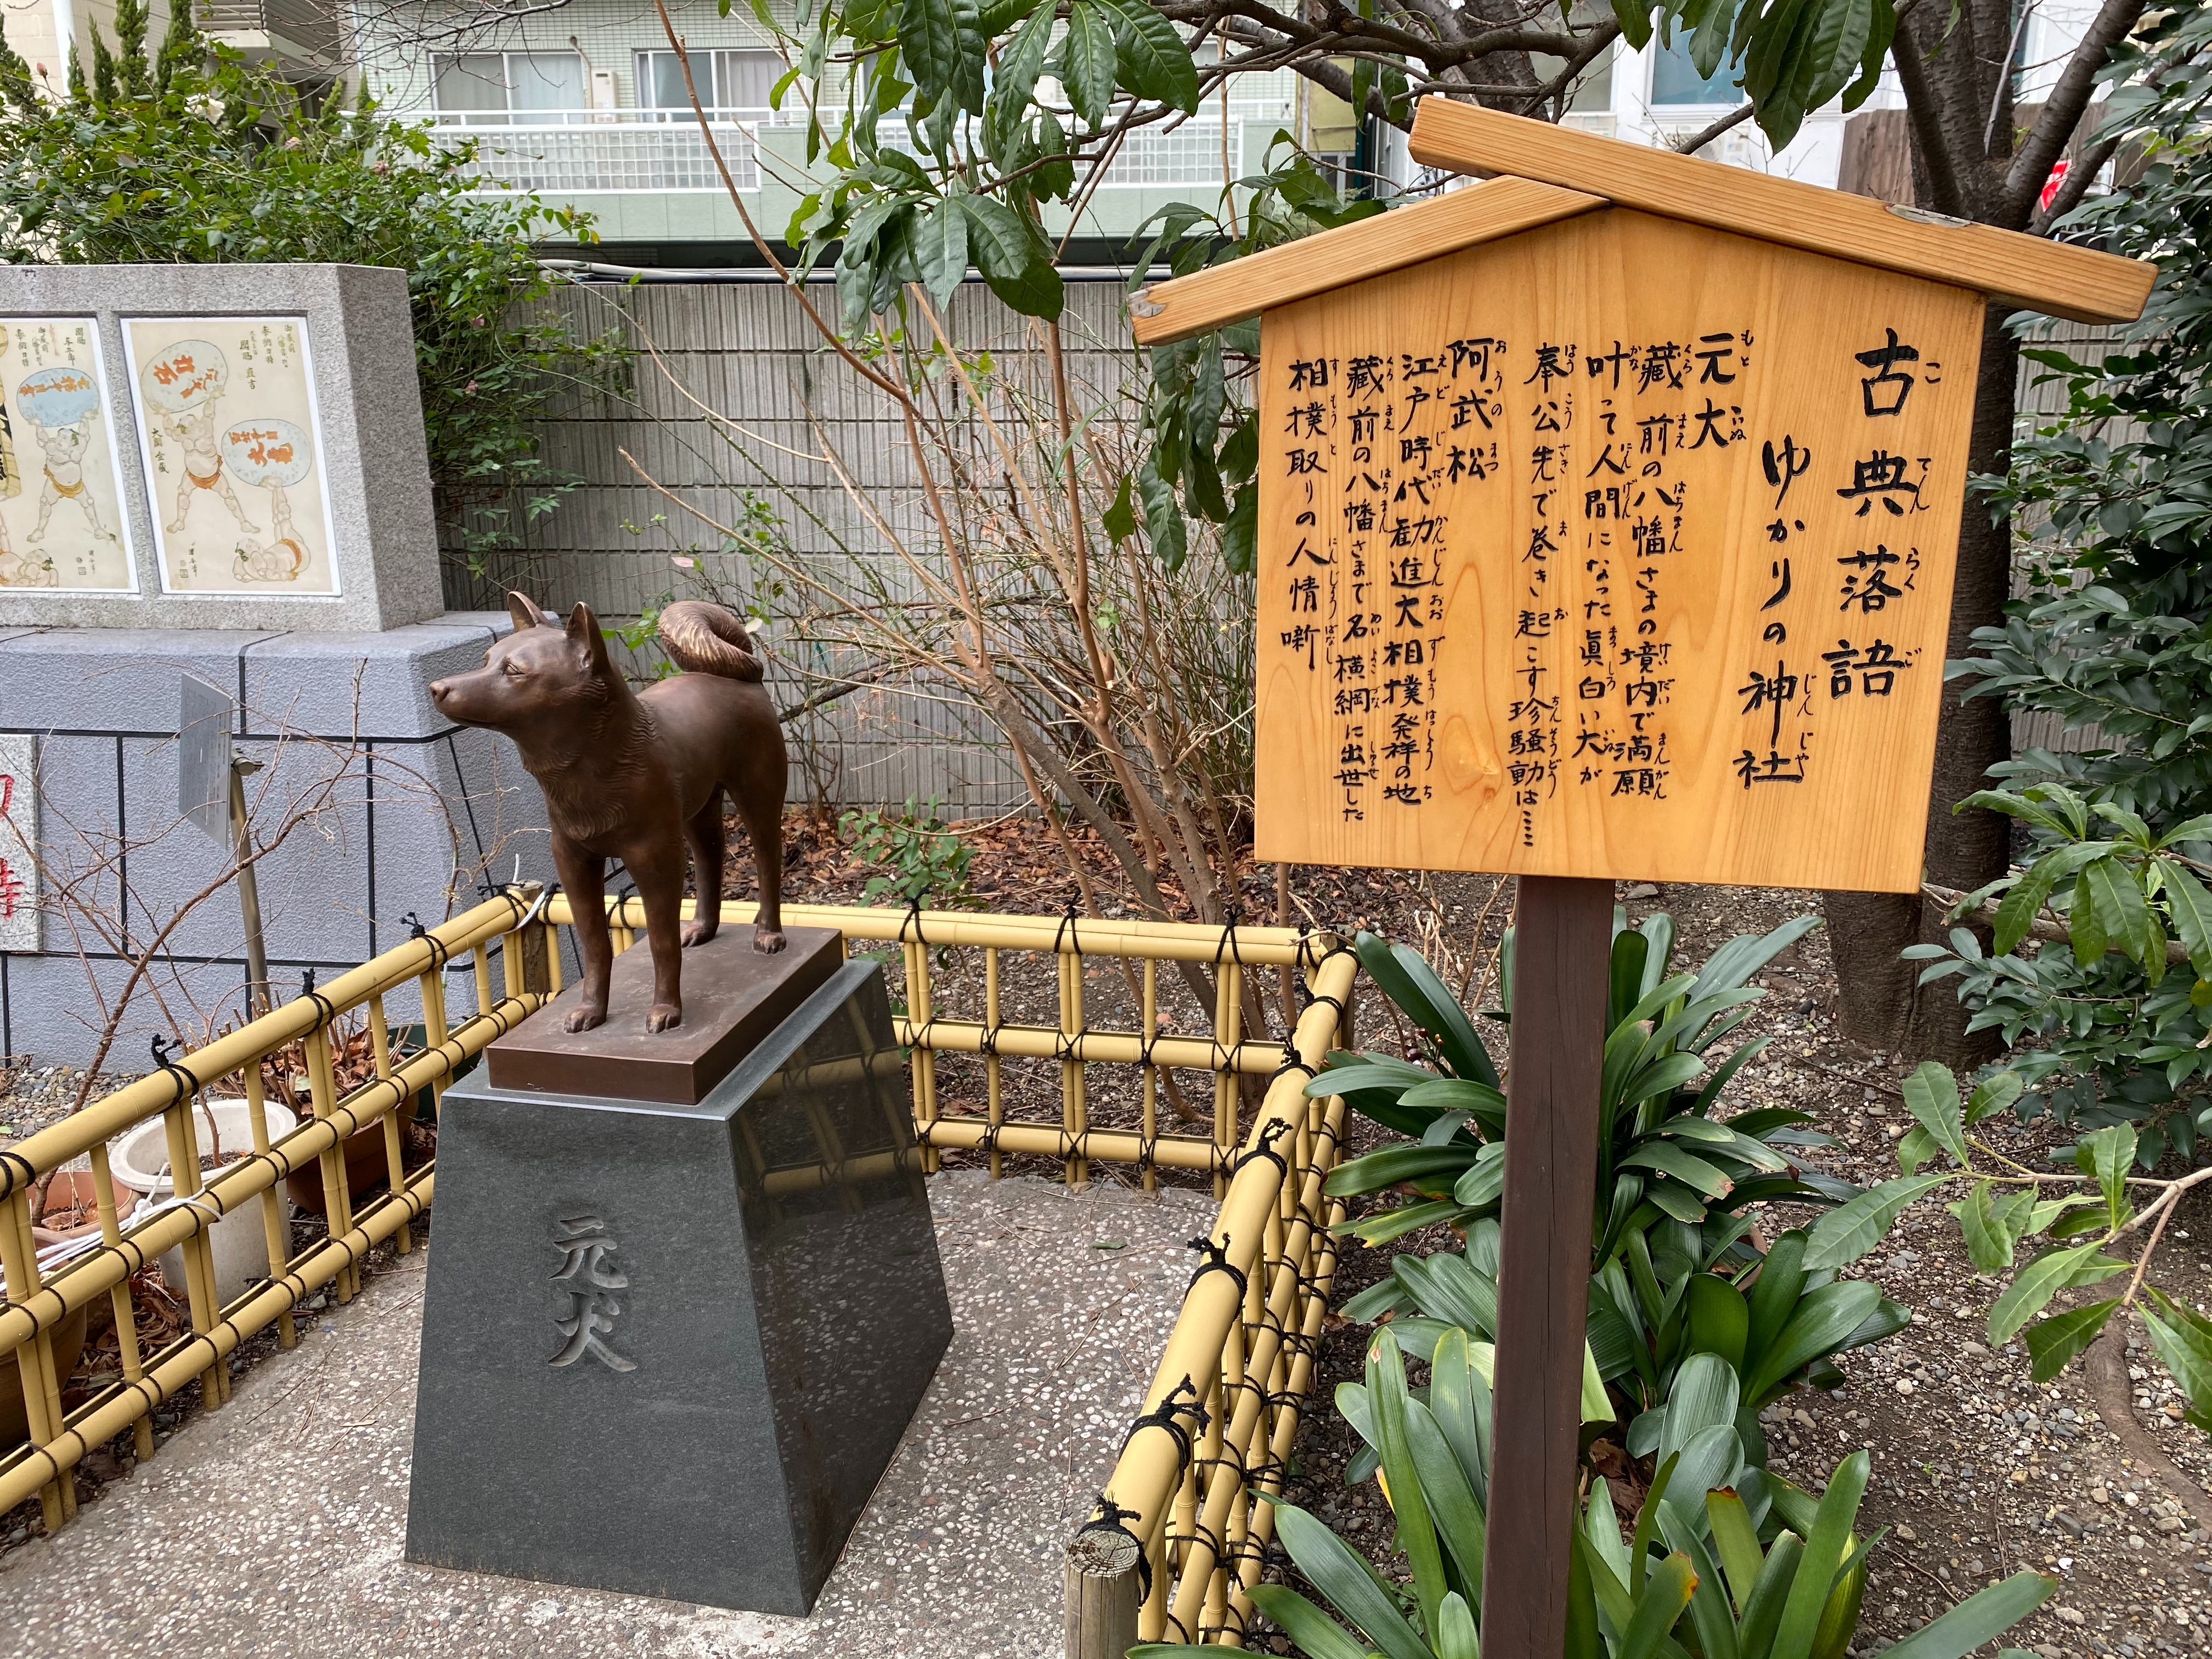 古典落語
ゆかりの神社
元犬
藏前の八幡さまの境内で満願
叶って人間になった眞白い犬が
奉公先で巻き起こす珍騒動は……
阿武松
江戸時代勧進大相撲発祥の地
藏前の八幡さまで名横綱に出世した
相撲取りの人情噺
元犬